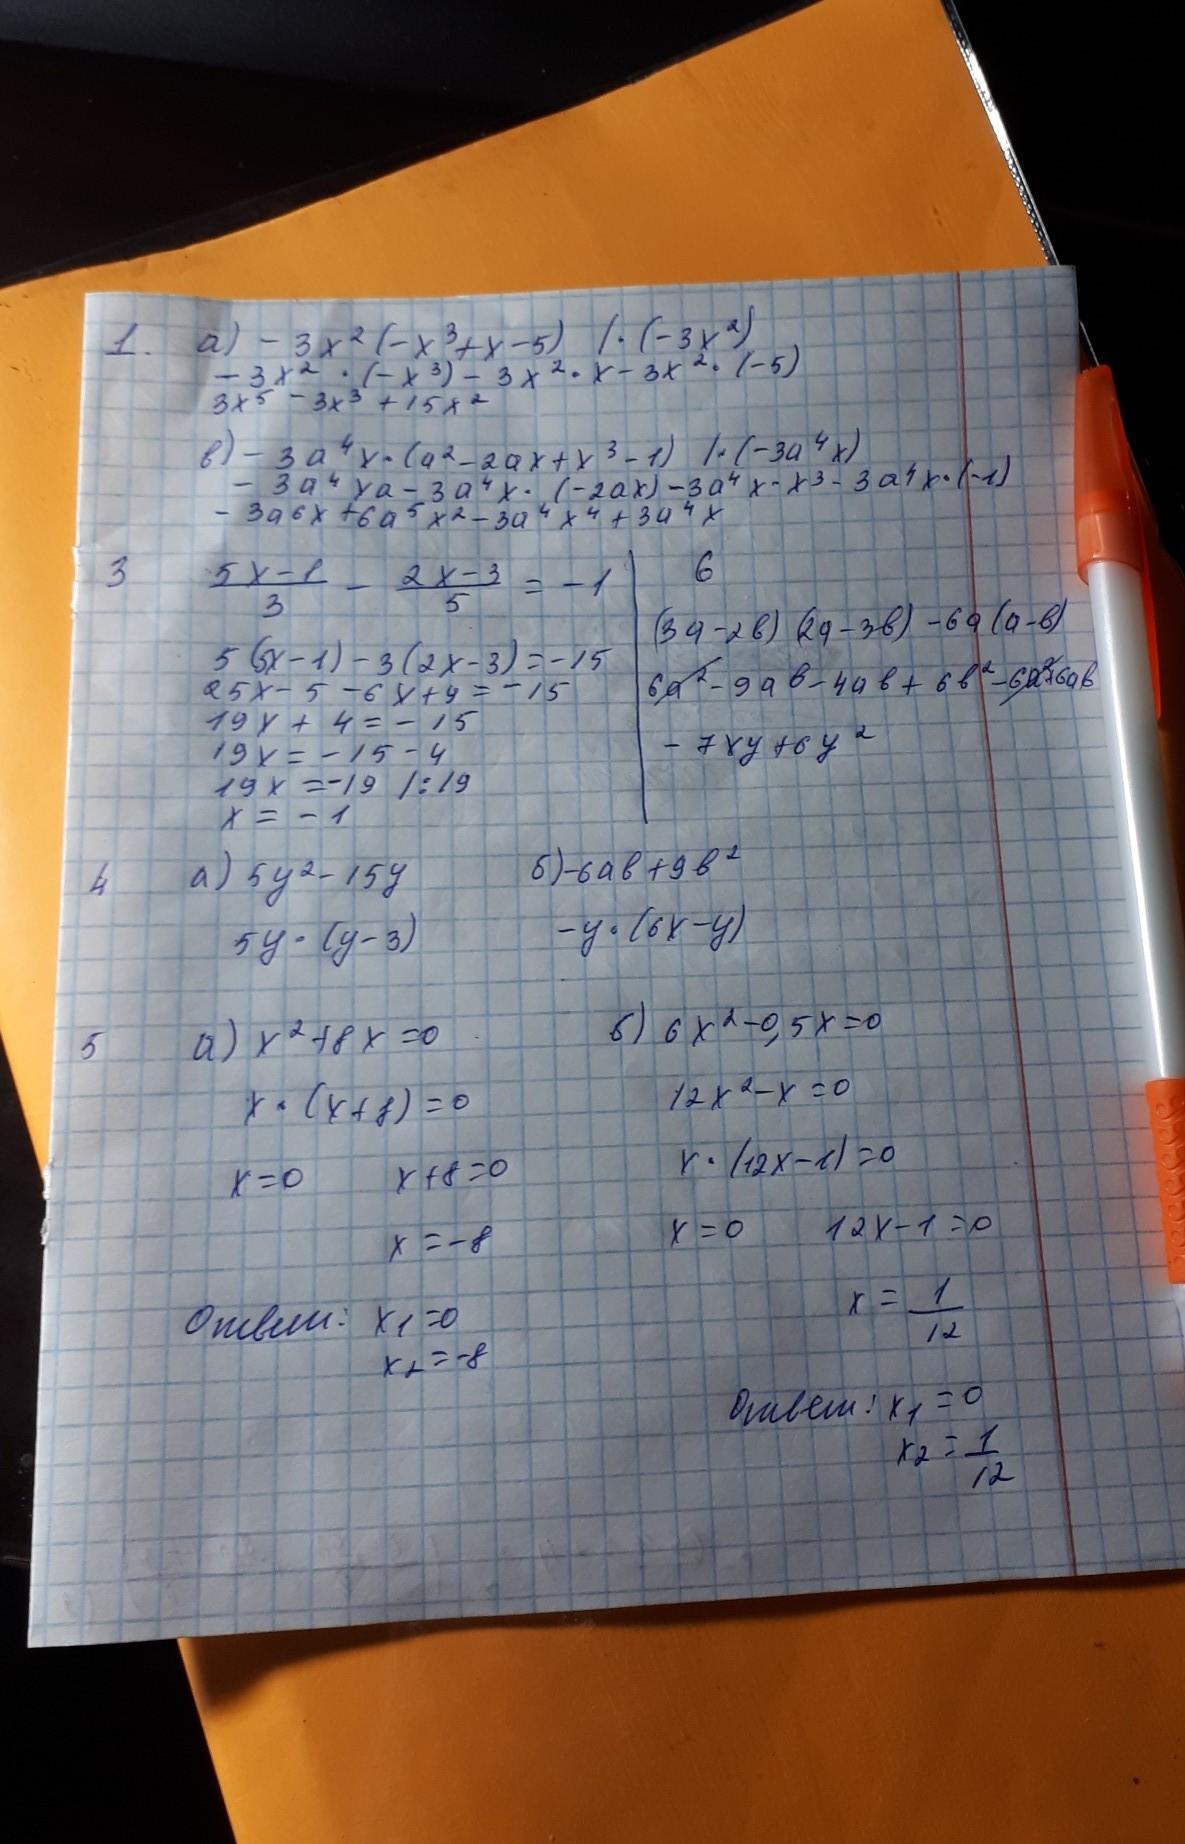 1. а) - 3x²(-x³+x-5) /·(-3x²)
-3x²·(-x³)-3x²·x-3x²·(-5)
3x⁵-3x³+15x²
в) - 3a⁴x·(a²-2ax+x³-1) /·(-3a⁴x)
- 3a⁴xa-3a⁴x·(-2ax)-3a⁴x-x³-3a⁴x·(-1)
- 3a6x+6a⁵x²-3a⁴x⁴+3a⁴x
3 (5x-1)/3 - (2x-3)/5 = -1
5(5x-1)-3(2x-3)=-15
25x-5-6x+9=-15
19x+4=-15
19x=-15-4
19x=-19 /:19
x=-1
6
(3a-2в)(2a-3в)-6a(a-в)
6a²-9aв-4aв+6в²-6a²+6aв
-7xy+6y²
4 а) 5y²-15y
5y·(y-3)
б) -6aв+9в²
-y·(6x-y)
5 а) x²+8x=0
x·(x+8)=0
x=0 x+8=0
x=-8
Ответ: x₁=0
x₂=-8
б) 6x²-0,5x=0
12x²-x=0
x·(12x-1)=0
x=0 12x-1=0
x=1/12
Ответ: x₁=0
x₂=1/12